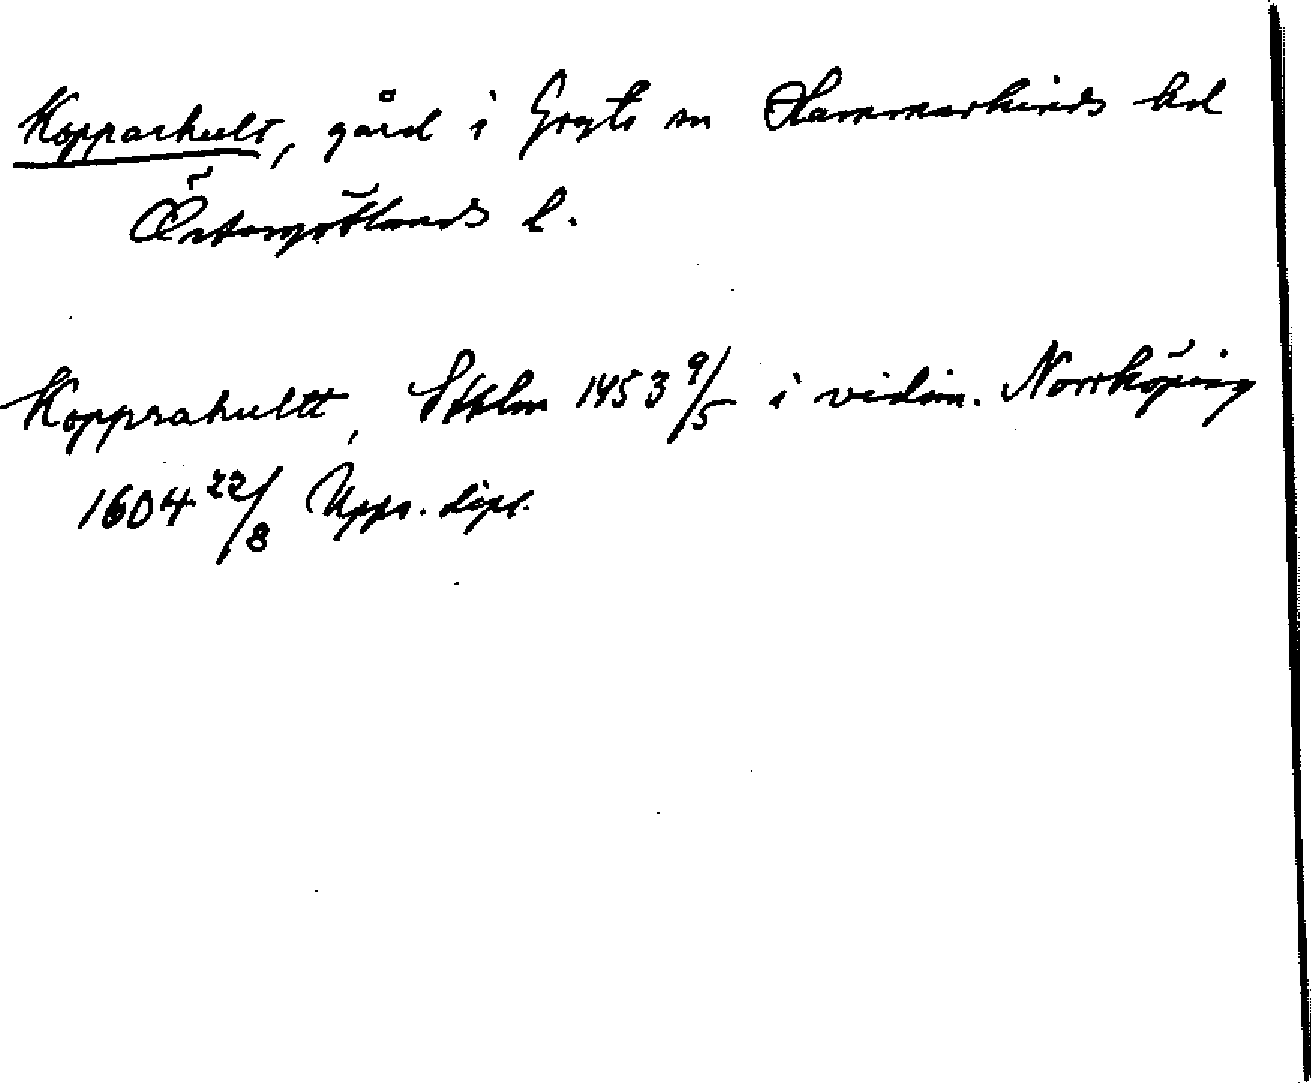 Kopparhult, gård i Gryts sn Hammarkinds hd
Östergötlands l.
Topprahultt, Sthlm 1453 9/5 i vidim. Norrköping
1604 22/8 Upps. dipl.